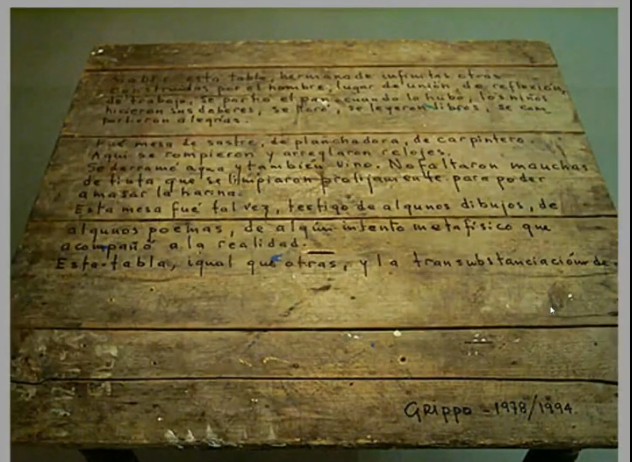 Sobre esta tabla, hermana de infinitas otras
construidas por el hombre, lugar de unión, de reflexión,
de trabajo, se partió el pan, cuando lo hubo, los niños
hicieron sus deberes, se lloró, se leyeron libros, se com
partieron alegrías.
Fué mesa de sastre, de planchadora, de carpintero.
Aquí se rompieron y arreglaron relojes.
Se derramó agua y también vino. No faltaron manchas
de tinta que se limpiaron prolijamente para poder
amasar la harina.
Esta mesa fué tal vez, testigo de algunos dibujos, de
algunos poemas, de algún intento metafísico que
acompañó a la realidad.
Esta tabla, igual que otras, y la transubstanciación de.
GRIPPO - 1978/1994